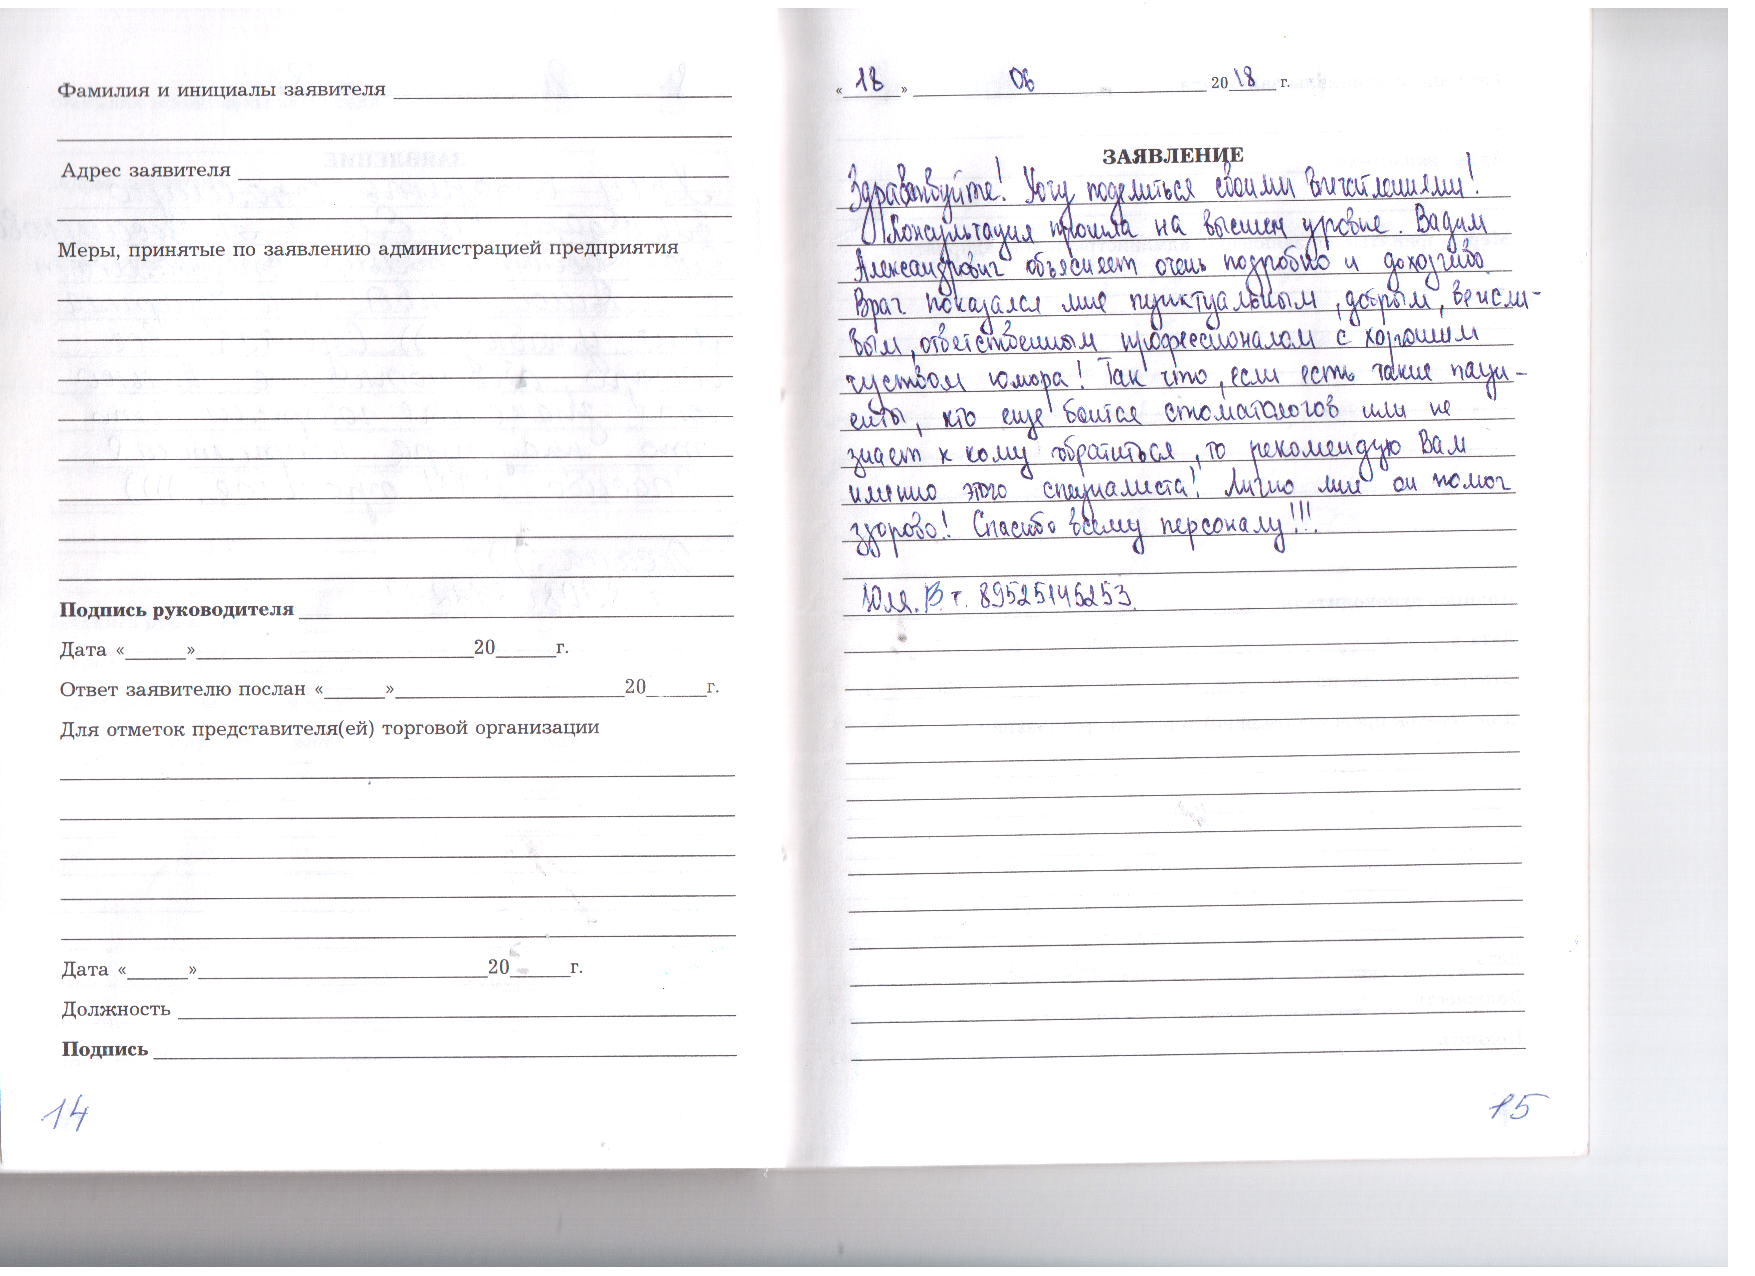 Фамилия и инициалы заявителя
Адрес заявителя
Меры, принятые по заявлению администрацией предприятия
Подпись руководителя
Дата «______»____________20______г.
Ответ заявителю послан «______»____________20______г.
Для отметок представителя(ей) торговой организации
Дата «______»____________20______г.
Должность
Подпись
14
«18» 06 2018 г.
ЗАЯВЛЕНИЕ
Здравствуйте! Хочу поделиться своими впечатлениями!
Консультация прошла на высшем уровне. Вадим
Александрович объясняет очень подробно и доходчиво.
Врач показался мне пунктуальным, добрым, вежли-
вым, ответственным профессионалом с хорошим
чуством юмора! Так что, если есть такие паци-
енты, кто еще боится стоматологов или не
знает к кому обратиться, то рекомендую Вам
именно этого специалиста! Лично мне он помог
здорово! Спасибо всему персоналу!!!
Юля. В. т. 89525145253.
15